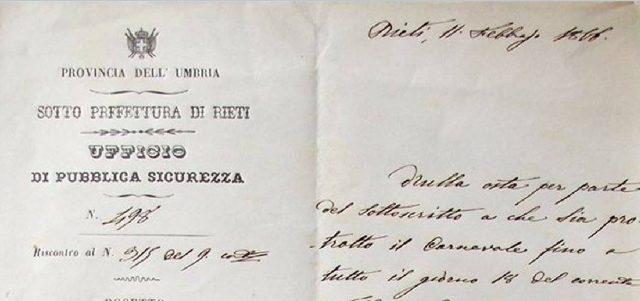 PROVINCIA DELL' UMBRIA
SOTTO PREFETTURA DI RIETI
UFFICIO
DI PUBBLICA SICUREZZA
N. 498
Riscontro al N. 315 del 9. cor
Rieti, 11 Febbajo 1866.
Nulla osta per parte
del sottoscritto a che sia pro
tratto il Carnevale fino a
tutto il giorno 18 del corrente